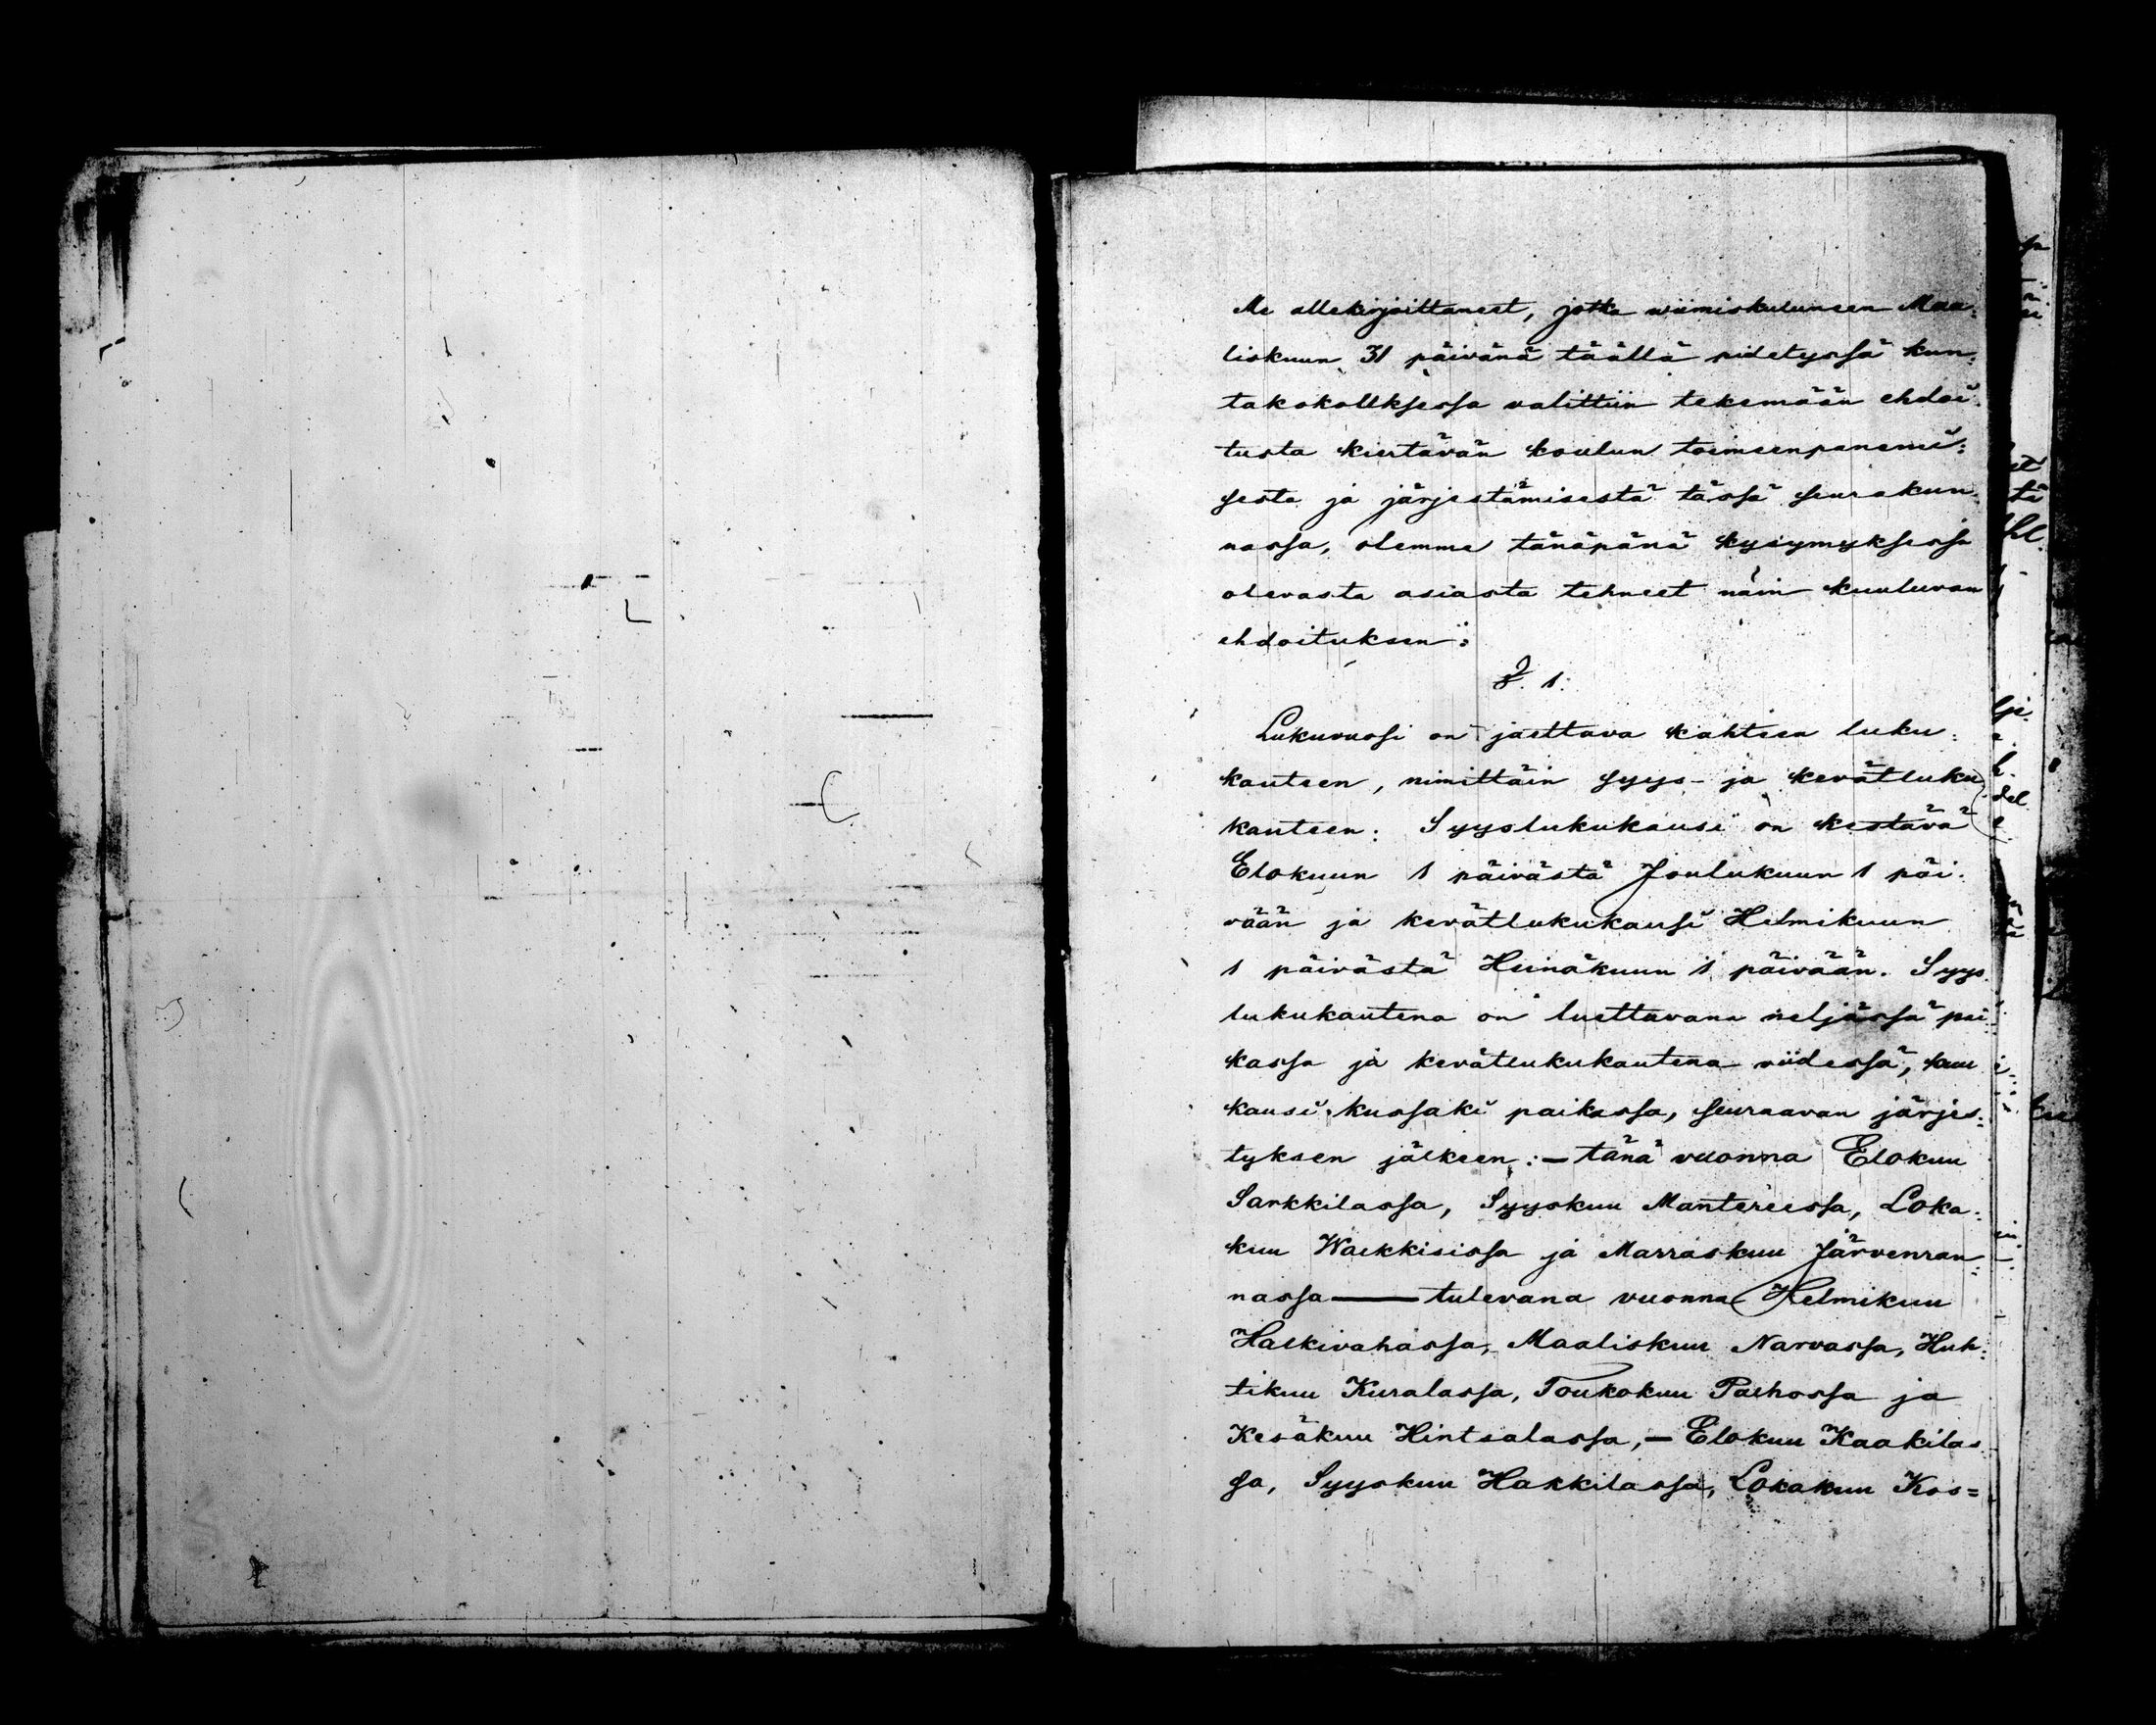 Me allekirjoittaneet, jotka wiimiskuluneen Maa-
liskuun 31 päivänä täällä pidetyssä kun-
takokouksessa valittiin tekemään ehdoi-
tusta kiertävän koulun toimeenpanemi-
sesta ja järjestämisestä tässä seurakun-
nassa, olemme tänäpänä kysymyksessä
olevasta asiasta tehneet näin kuuluvan
ehdoituksen:
§. 1.
Lukuvuosi on jaettava kahteen luku-
kauteen, nimittäin syys- ja kevätluku
kauteen. Syyslukukausi on kestävä
Elokuun 1 päivästä Joulukuun 1 päi-
vään ja kevätlukukausi Helmikuun
1 päivästä Heinäkuun 1 päivään. Syys
lukukautena on luettavana neljässä pai
kassa ja kevätlukukautena viidessä, kuu
kausi kussaki paikassa, seuraavan järjes-
tyksen jälkeen: — tänä vuonna Elokuu
Sarkkilassa, Syyskuu Mantereessa, Loka-
kuu Wackkisissa ja Marraskuu Järvenran-
nassa — tulevana vuonna Helmikuu
Halkivahassa, Maaliskuu Narvassa, Huh-
tikuu Kuralassa, Toukokuu Palhossa ja
Kesäkuu Hintsalassa, — Elokuu Kaakilas
sa, Syyskuu Hakkilassa, Lokakuu Kos=